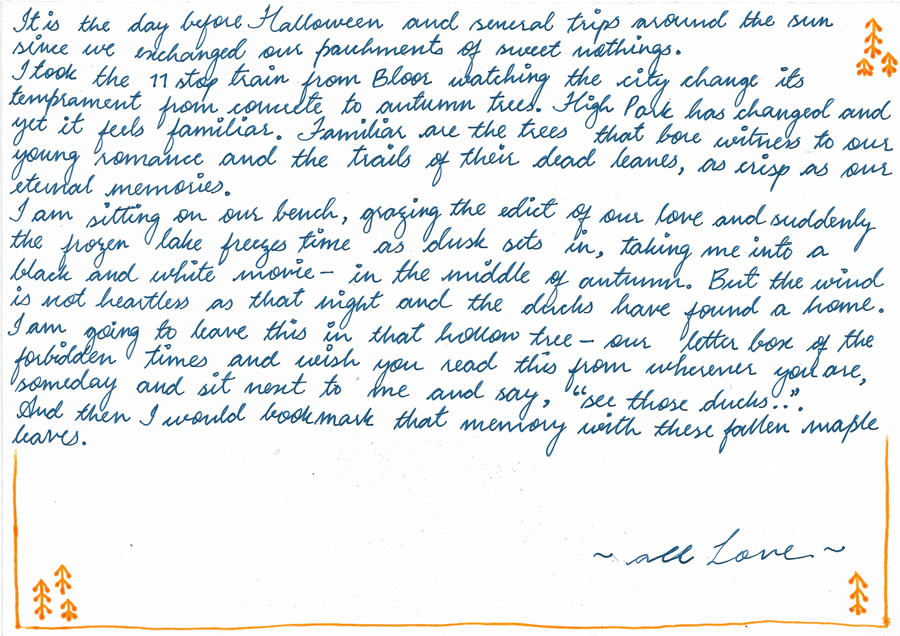 It is the day before Halloween and several trips around the sun
since we exchanged our parchments of sweet nothings.
I took the 11 stop train from Bloor watching the city change its
temprament from concrete to autumn trees. High Park has changed and
yet it feels familiar. Familiar are the trees that bore witness to our
young romance and the trails of their dead leaves, as crisp as our
eternal memories.
I am sitting on our bench, grazing the edict of our love and suddenly
the frozen lake freezes time as dusk sets in, taking me into a
black and white movie - in the middle of autumn. But the wind
is not heartless as that night and the ducks have found a home.
I am going to leave this in that hollow tree - our letter box of the
forbidden times and wish you read this from wherever you are,
someday and sit next to me and say, "see those ducks..".
And then I would bookmark that memory with these fallen maple
leaves.
~ all Love ~